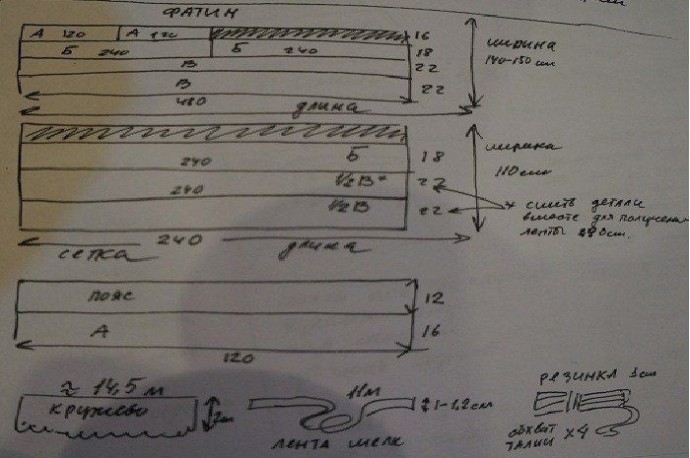 ФАТИН
А 120 А 120 16
Б 240 Б 240 18
В 22
В 22
480 длина
ширина
140-150 см
240 Б 18
240 1/2 В* 22
1/2 В 22
240
сетка длина
ширина
110 см
* сшить детали
вместе для получения
ленты 480 см.
пояс 12
А 16
120
≈ 14,5 м
кружево
11м
1-1,2см
лента шелк
резинка
обхват
талии x4